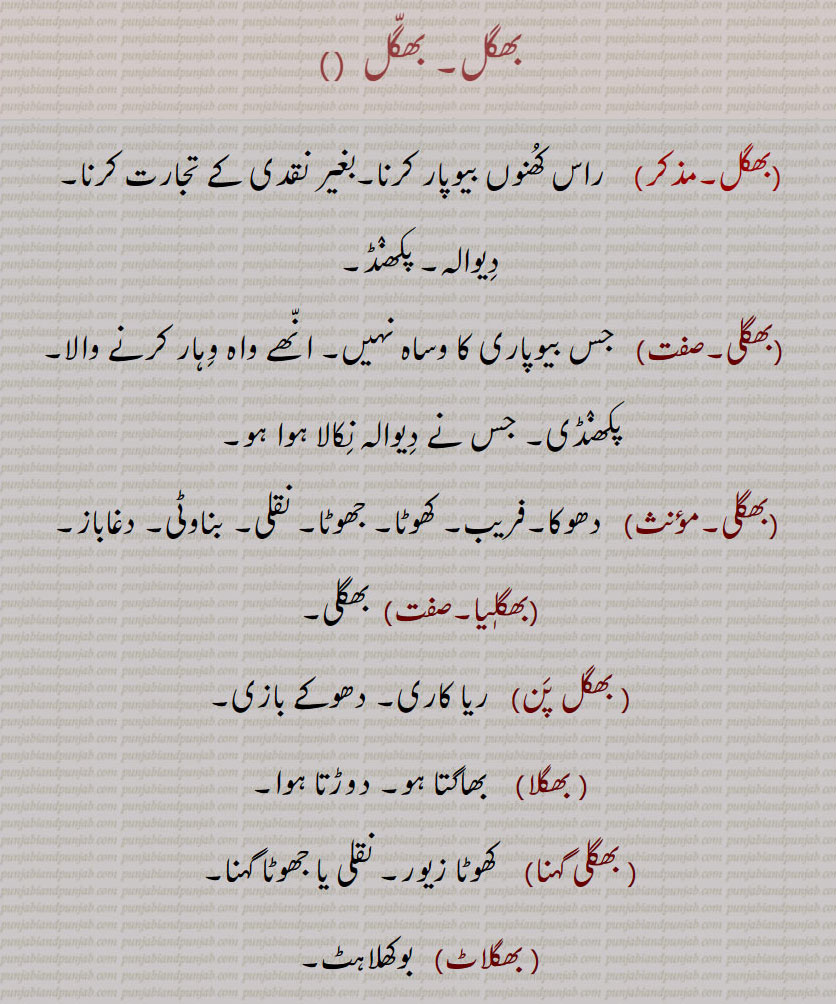 بھگل۔ بھگّل ()
(بھگل۔مذکر) راس کُھنوں بیوپار کرنا۔بغیر نقدی کے تجارت کرنا۔
دِیوالہ۔ پکھنڈ۔
(بھگلی۔صفت) جس بیوپاری کا وساہ نہیں۔ انّھے واہ وِہار کرنے والا۔
پکھنڈی۔ جس نے دِیوالہ نِکالا ہوا ہو۔
(بھگلی۔مؤنث) دھوکا۔فریب۔ کھوٹا۔ جھوٹا۔ نقلی۔ بناوٹی۔ دغاباز۔
(بھگلِیا۔صفت) بھگلی۔
(بھگل پَن) ریا کاری۔ دھوکے بازی۔
(بھگلا) بھاگتا ہو۔ دوڑتا ہوا۔
(بھگلی گہنا) کھوٹا زیور۔ نقلی یا جھوٹا گہنا۔
(بھگلاٹ) بوکھلاہٹ۔